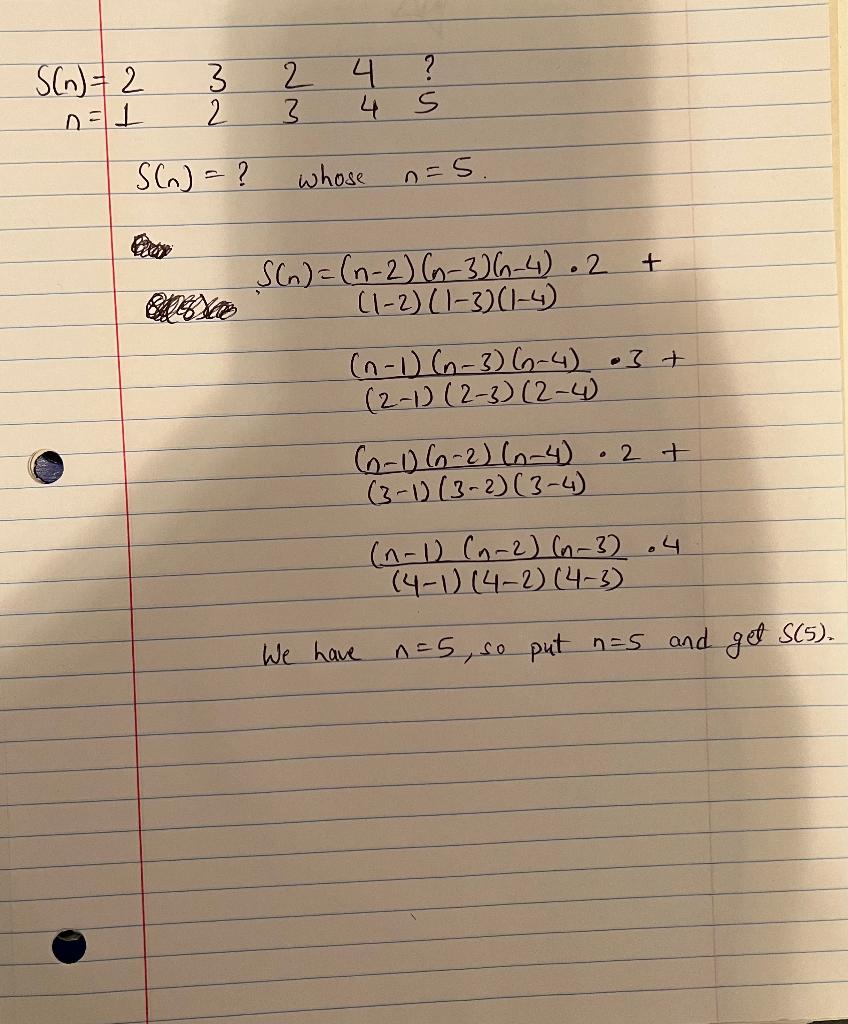 S(n) = 2 3 2 4 ?
n = 1 2 3 4 5
S(n) = ? whose n = 5.
S(n) = (n-2)(n-3)(n-4) . 2 +
(1-2)(1-3)(1-4)
(n-1)(n-3)(n-4) . 3 +
(2-1)(2-3)(2-4)
(n-1)(n-2)(n-4) . 2 +
(3-1)(3-2)(3-4)
(n-1)(n-2)(n-3) . 4
(4-1)(4-2)(4-3)
We have n=5, so put n=5 and get S(5).